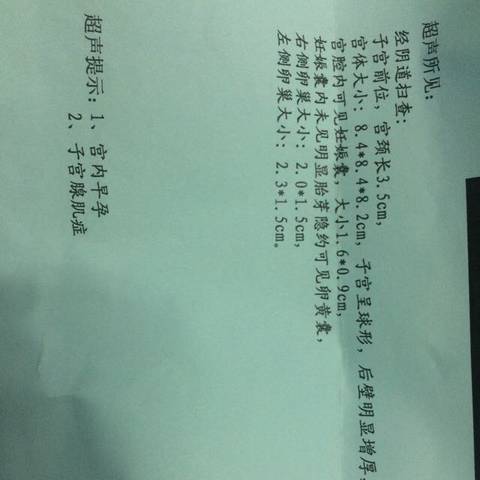 超声所见：
经阴道扫查：
子宫前位，宫颈长3.5cm，
宫体大小：8.4*8.4*8.2cm，子宫呈球形，后壁明显增厚，
宫腔内可见妊娠囊，大小1.6*0.9cm，
妊娠囊内未见明显胎芽隐约可见卵黄囊，
右侧卵巢大小：2.0*1.5cm，
左侧卵巢大小：2.3*1.5cm。
超声提示：1、宫内早孕
2、子宫腺肌症